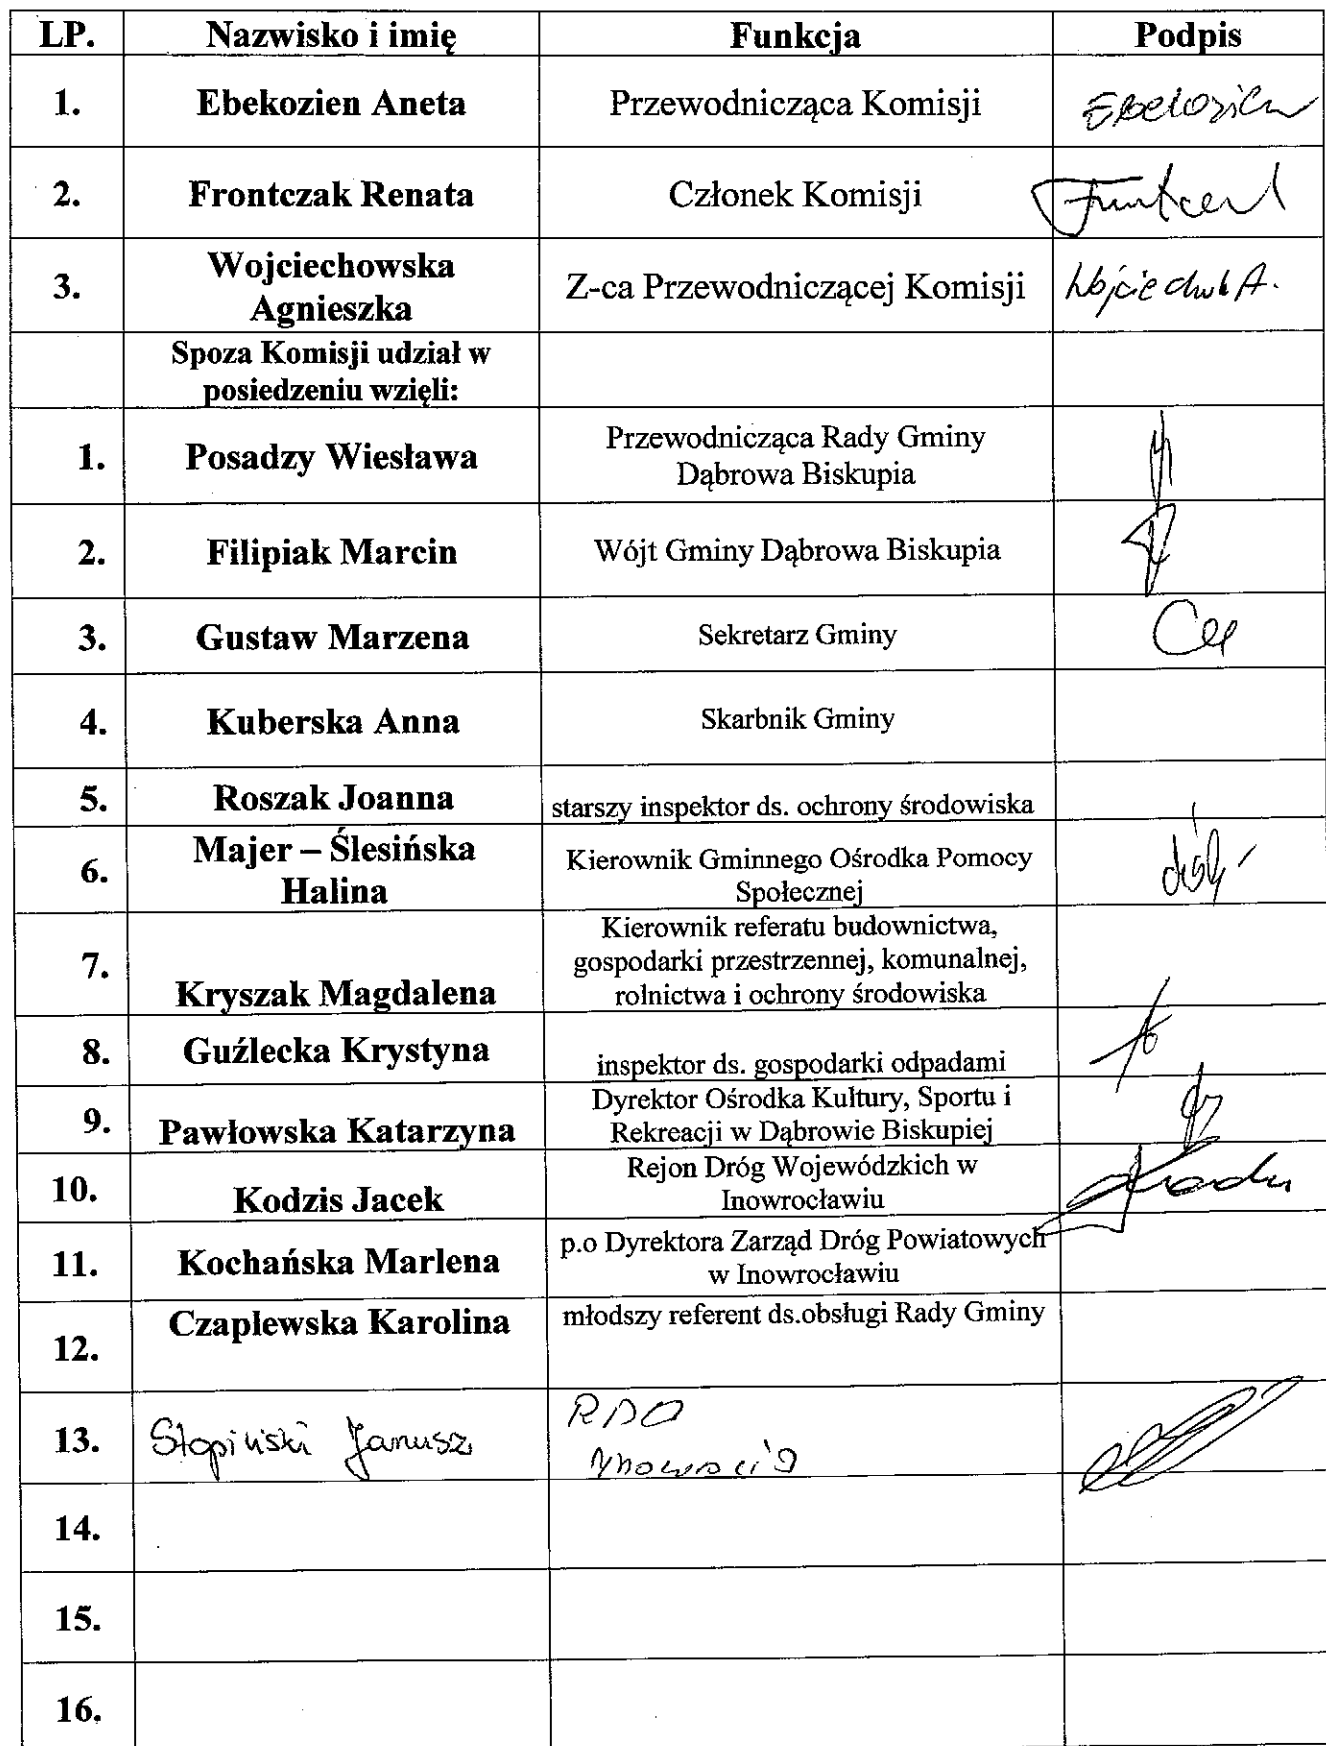 LP. Nazwisko i imię Funkcja Podpis
1. Ebekozien Aneta Przewodnicząca Komisji Ebekozien
2. Frontczak Renata Członek Komisji
3. Wojciechowska Agnieszka Z-ca Przewodniczącej Komisji
Spoza Komisji udział w
posiedzeniu wzięli:
1. Posadzy Wiesława Przewodnicząca Rady Gminy
Dąbrowa Biskupia
2. Filipiak Marcin Wójt Gminy Dąbrowa Biskupia
3. Gustaw Marzena Sekretarz Gminy
4. Kuberska Anna Skarbnik Gminy
5. Roszak Joanna starszy inspektor ds. ochrony środowiska
6. Majer – Ślesińska
Halina
Kierownik Gminnego Ośrodka Pomocy
Społecznej
7. Kryszak Magdalena
Kierownik referatu budownictwa,
gospodarki przestrzennej, komunalnej,
rolnictwa i ochrony środowiska
8. Guźlecka Krystyna inspektor ds. gospodarki odpadami
9. Pawłowska Katarzyna
Dyrektor Ośrodka Kultury, Sportu i
Rekreacji w Dąbrowie Biskupiej
10. Kodzis Jacek
Rejon Dróg Wojewódzkich w
Inowrocławiu
11. Kochańska Marlena
p.o Dyrektora Zarząd Dróg Powiatowych
w Inowrocławiu
12. Czaplewska Karolina młodszy referent ds.obsługi Rady Gminy
13. Stopiński Janusz
14.
15.
16.